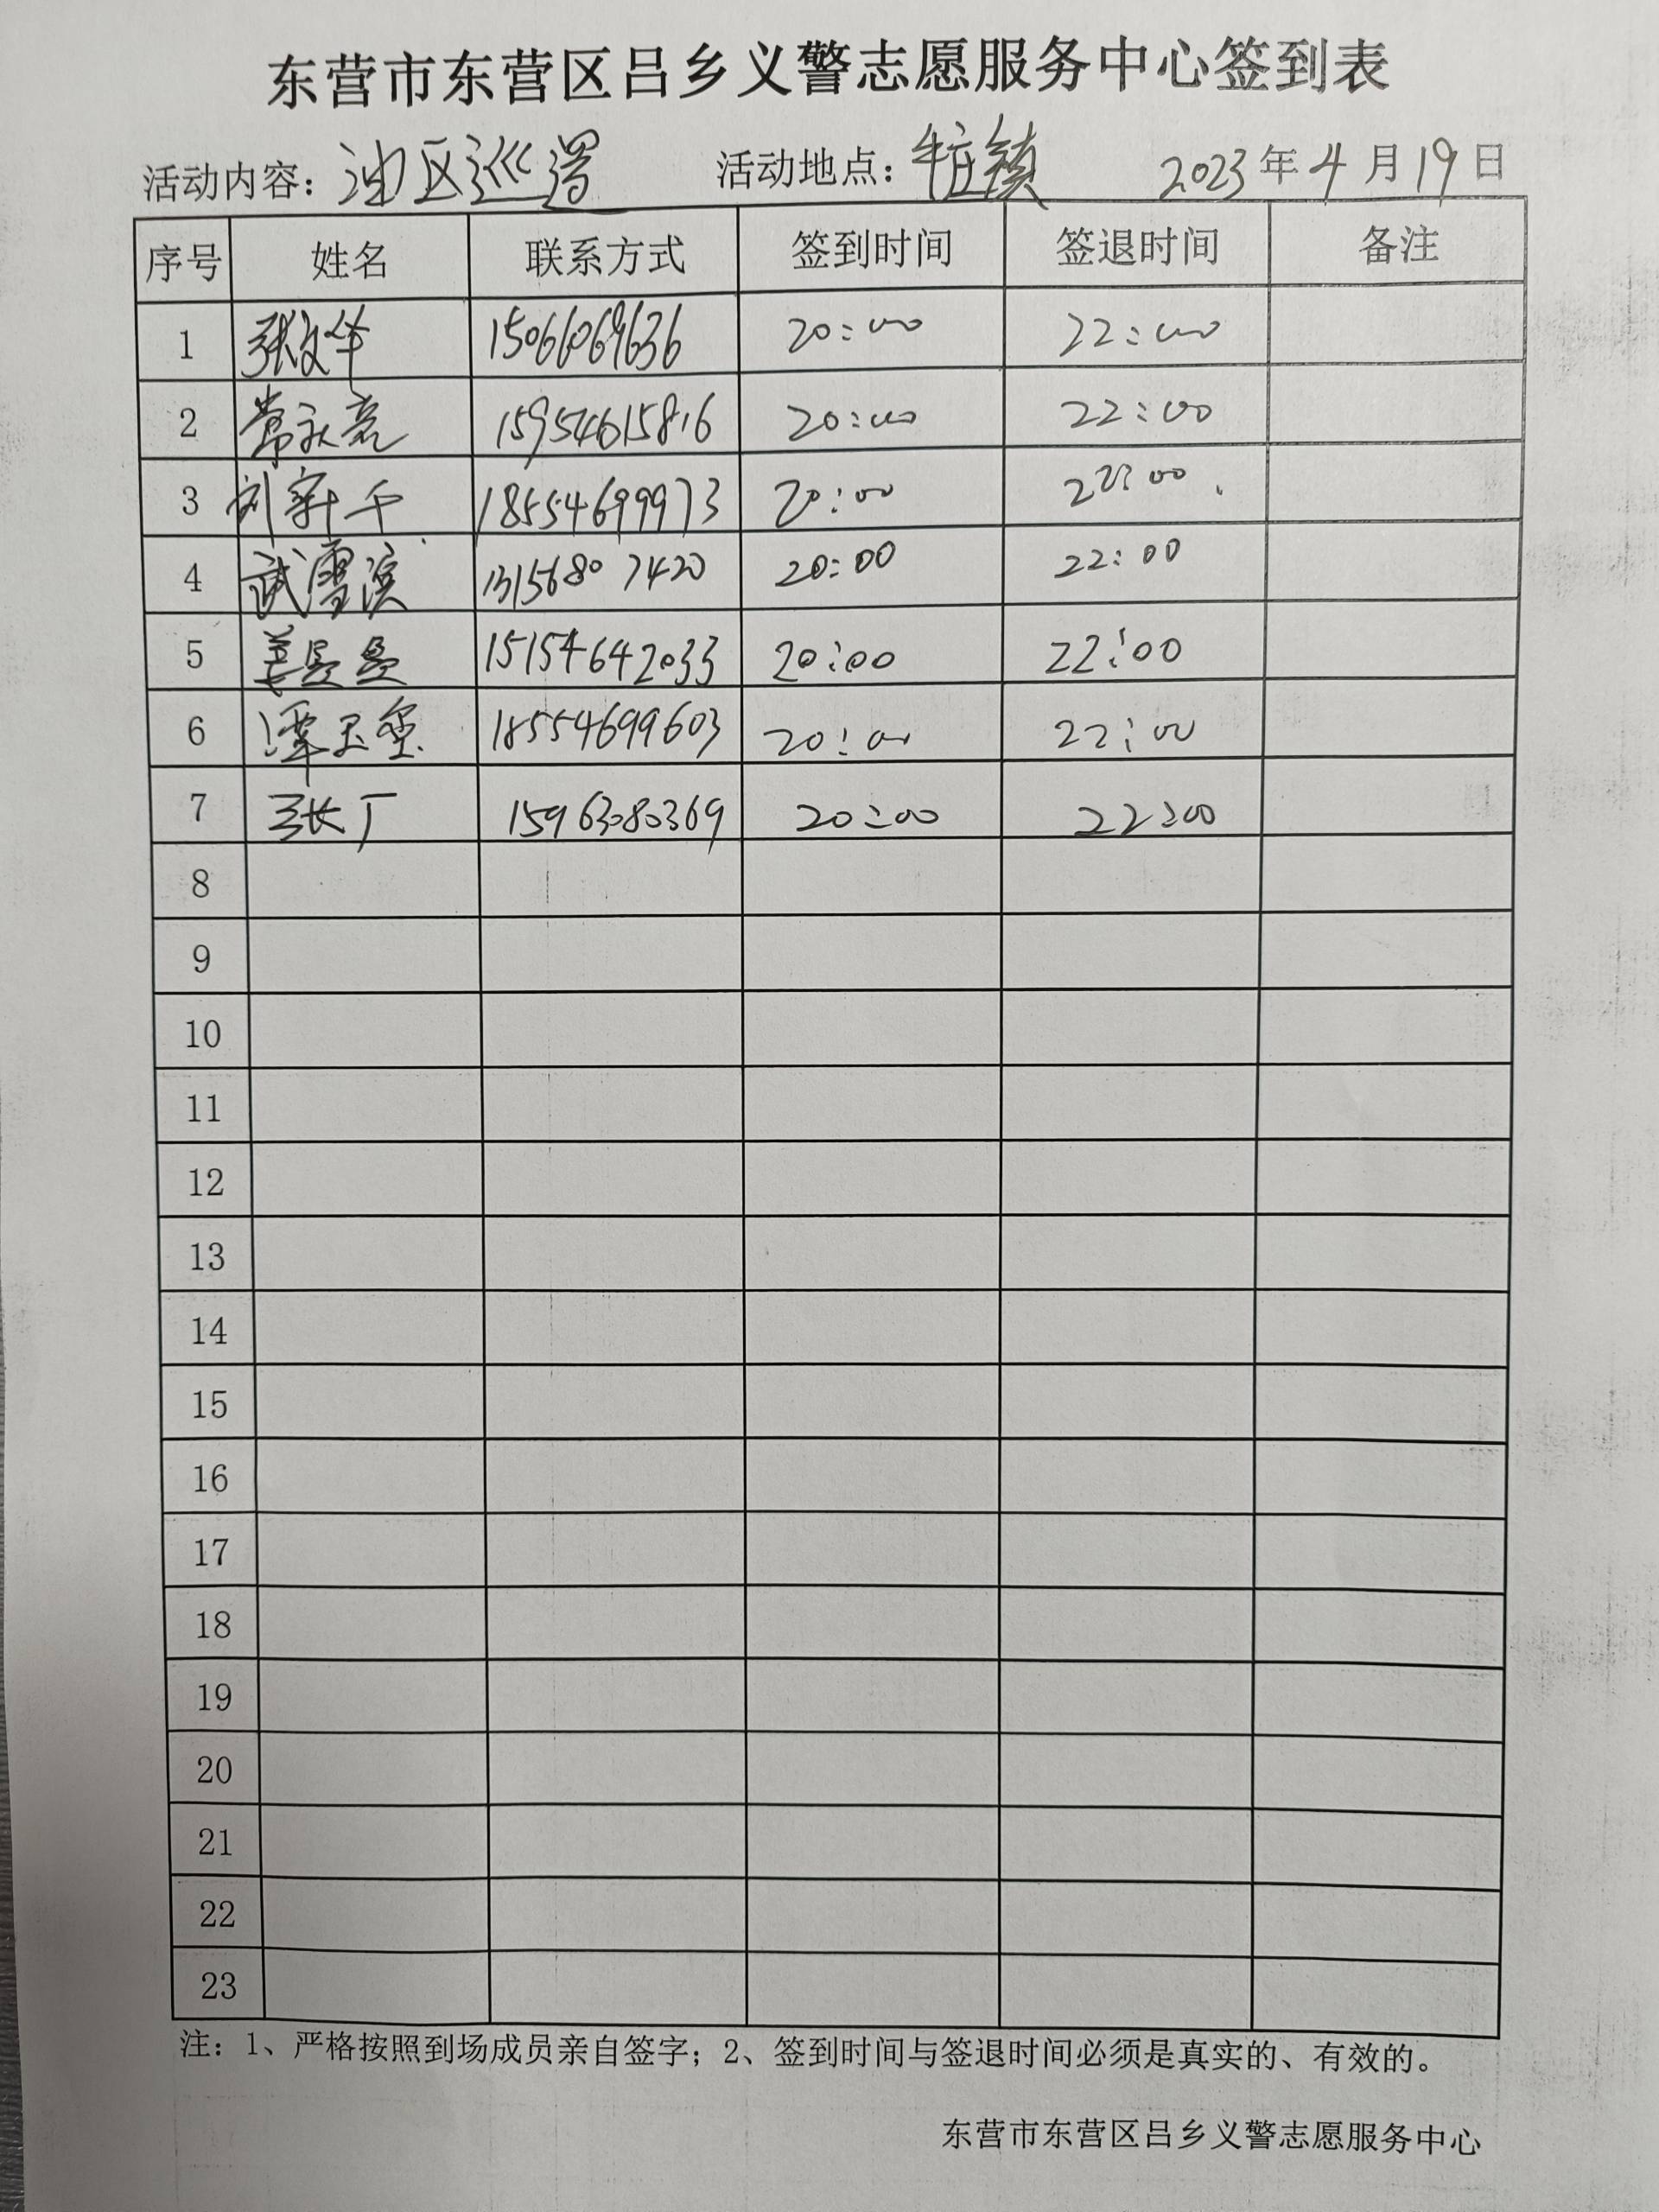 东营市东营区吕乡义警志愿服务中心签到表
活动内容：油区巡逻 活动地点：牛庄镇 2023年4月19日
序号 姓名 联系方式 签到时间 签退时间 备注
1 张文华 15066069636 20:00 22:00
2 常永亮 15954615816 20:00 22:00
3 刘新千 18554699973 20:00 22:00
4 武雪滨 13156807420 20:00 22:00
5 姜曼曼 15154642033 20:00 22:00
6 20:00 18554699603 22:00
7 张厂 15963080369 20:00 22:00
8
9
10
11
12
13
14
15
16
17
18
19
20
21
22
23
注：1、严格按照到场成员亲自签字；2、签到时间与签退时间必须是真实的、有效的。
东营市东营区吕乡义警志愿服务中心